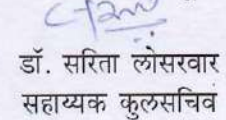 डॉ. सरिता लोसरवार
सहाय्यक कुलसचिव